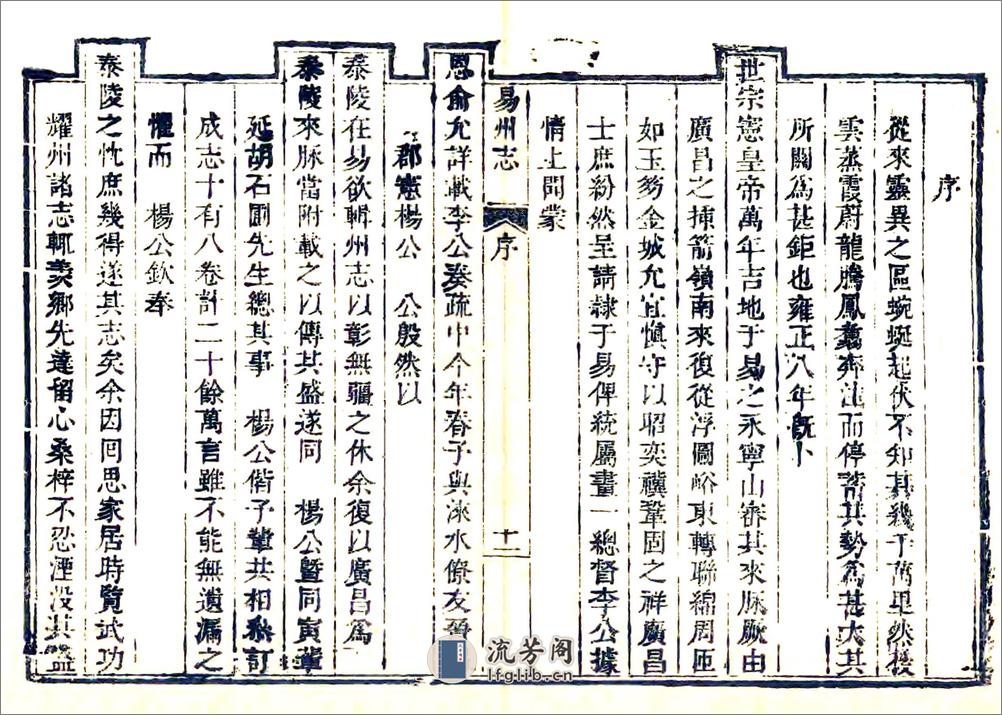 序
從來靈異之區蜿蜒起伏不知其幾千萬里然後
雲蒸霞蔚龍騰鳳翥奔注而停蓄其勢為甚大其
所關為甚鉅也雍正八年既卜
世宗憲皇帝萬年吉地于易之永寧山審其來脉厥由
廣昌之揷箭嶺南來復從浮圖峪東轉聯綿周匝
如玉笏金城允宜慎守以昭奕禩鞏固之祥廣昌
士庶紛然呈請隸于易俾統屬畫一總督李公據
情上聞蒙
易州志
序
十二
恩俞允詳載李公湊疏中今年春予與淶水僚友晉
郡憲楊公 公殷然以
泰陵在易欲輯州志以彰無疆之休余復以廣昌為
泰陵來脉當附載之以傳其盛遂同 楊公暨同寅輩
延胡石圃先生總其事 楊公偕予輩共相叅訂
成志十有八卷計二十餘萬言雖不能無遺漏之
懼而 楊公欽奉
泰陵之忱庶幾得遂其志矣余因回思家居時覽武功
耀州諸志輒羨鄉先達留心桑梓不忍湮沒其盛
流芳阁
lfglib.cn